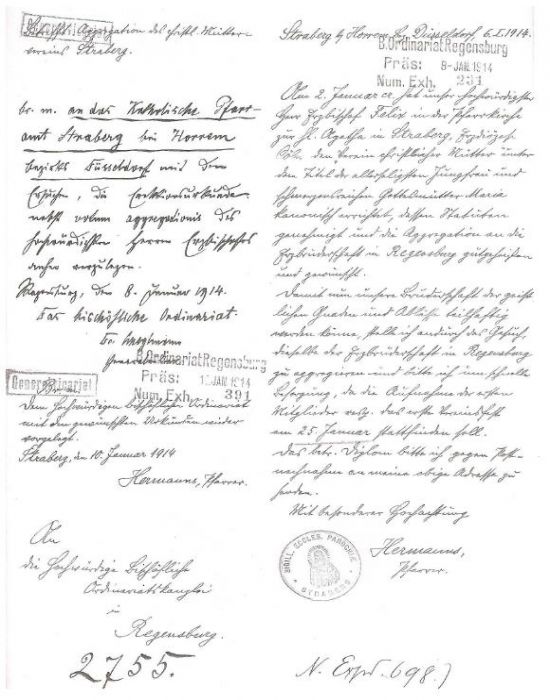 Betreff: Aggregation des christl. Mütter-
vereins Straberg.
br. m. an das Katholische Pfarr-
amt Straberg bei Horrem
bezirks Düsseldorf mit dem
Ersuchen, die Erektionsurkunde
nebst
hochwürdigsten Herrn Erzbischofes
anher vorzulegen.
Regensburg, den 8. Januar 1914.
Das bischöfliche Ordinariat.
B. Ordinariat Regensburg
Präs: 13 JAN. 1914
Num. Exh. 391
Generalvikariat
Dem Hochwürdigen bischöflichen Ordinariat
mit den gewünschten Urkunden wieder
vorgelegt.
Straberg, den 10. Januar 1914
Hermanns, Pfarrer.
An
die Hochwürdige Bischöfliche
Ordinariatskanzlei
in
Regensburg.
2755.
Straberg b/ Horrem Bz. Düsseldorf, 6.I.1914.
B. Ordinariat Regensburg
Präs: 8-JAN. 1914
Num. Exh. 231
Am 2. Januar cr. hat unser hochwürdigster
Herr Erzbischof Felix in der Pfarrkirche
zur hl. Agatha in Straberg, Erzdiözese
Cöln den Verein christlicher Mütter unter
dem Titel der allerseligsten Jungfrau und
schmerzensreichen Gottesmutter Maria
kanonisch errichtet, dessen Statuten
genehmigt und die Aggregation an die
Erzbruderschaft in Regensburg gutgeheißen
und gewünscht.
Damit nun unsere Bruderschaft der geist-
lichen Gnaden und Ablässe teilhaftig
werden könne, stelle ich andurch das Gesuch,
dieselbe der Erzbruderschaft in Regensburg
zu aggregieren und bitte ich um schnelle
Besorgung, da die Aufnahme der ersten
Mitglieder resp. das erste Vereinsfest
am 25. Januar stattfinden soll.
Das betr. Diplom bitte ich gegen Post-
nachnahme an meine obige Adresse zu
senden.
Mit besonderer Hochachtung
Hermanns,
Pfarrer.
SIGILL. ECCLES. PAROCHIAL.
STRABERG
N. Exped. 698.)